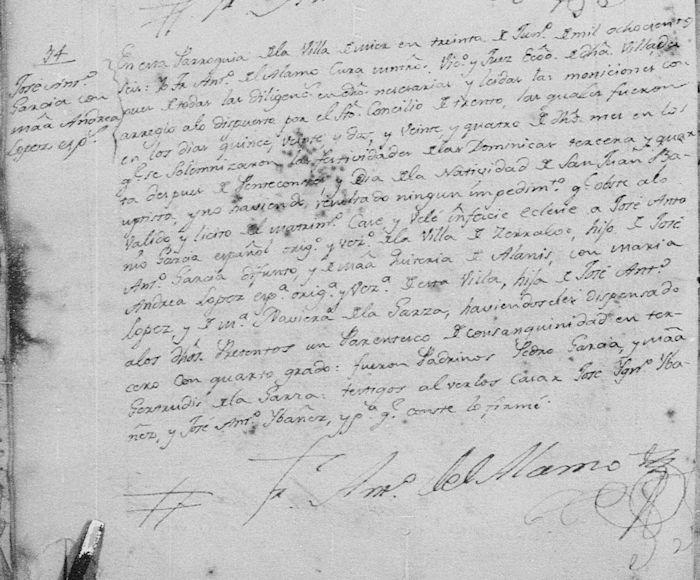 34
José Ant.º
Garcia con
Mãa Andrea
Lopez esp.ª
En esta Parroquia de la Villa de Mier en treinta de Jun.º de mil ochocientos
seis: Yo Fr. Ant.º del Alamo Cura Vic.º y Juez Ecc.º de dha. Villa, des
pues de todas las diligenc.s en dro. necesarias y leidas las moniciones con
arreglo alo dispuesto por el Sto. Concilio de Trento, las quales fueron
en los dias quince, veinte y dos, y veinte y quatro de dho. mes en los
q.e se solemnizaron las festividades de las Dominicas tercera y quar
ta despues de Pentecostes y Dia de la Natividad de San Juan Ba
uptista, y no haviendo resultado ningun impedim.to q.e obste alo
valido y licito del matrim.º Case y Velé infacie eclesie a José Anto
nio Garcia español orig.º y vez.º de la Villa de José
Ant.º Garcia difunto, y de Mãa Quiteria de Alanis, con Maria
Andrea Lopez esp.ª orig.ª y Vez.ª de esta Villa, hija de José Ant.º
Lopez y de M.ª Naviera de la Garza, haviendoseles dispensado
alos dhos. un Parentesco de consanguinidad en ter-
cero con quarto grado: fueron Padrinos Pedro Garcia, y Mãa
Gertrudis de la Garza: testigos al verlos Casar José Ygn.º Yba-
ñez, y José Ant.º Ybañez, y p.ª q.e conste lo firmé.
Fr. Ant.º del Alamo